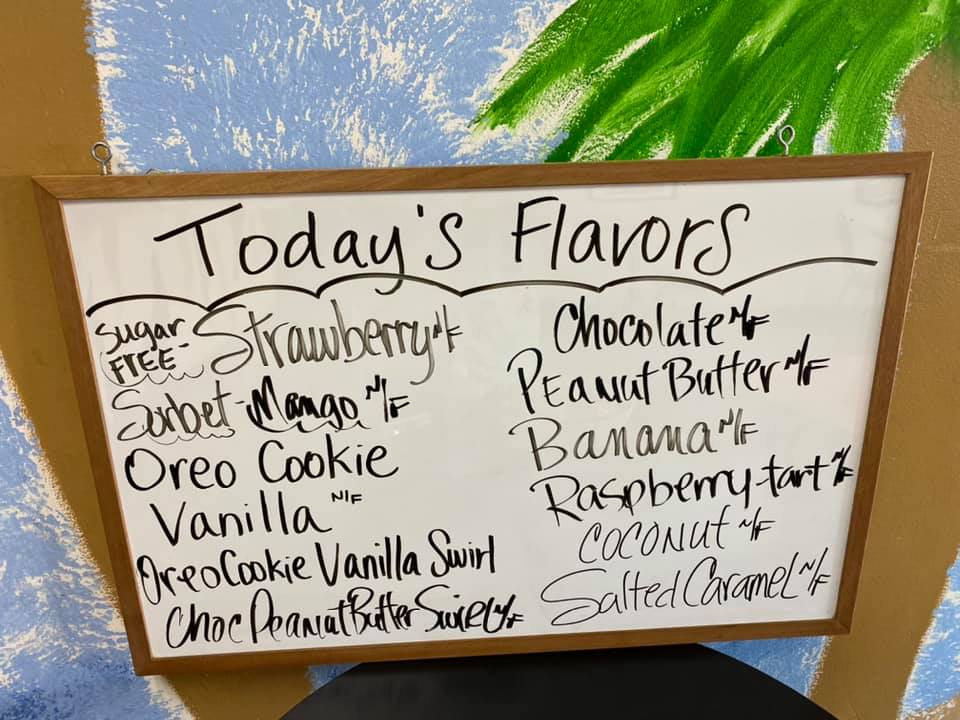 Today's Flavors
Sugar FREE- Strawberry N/F
Sorbet-Mango N/F
Oreo Cookie
Vanilla N/F
Oreo Cookie Vanilla Swirl
Choc Peanut Butter Swirl N/F
Chocolate N/F
Peanut Butter N/F
Banana N/F
Raspberry-tart N/F
COCONUT N/F
Salted Caramel N/F